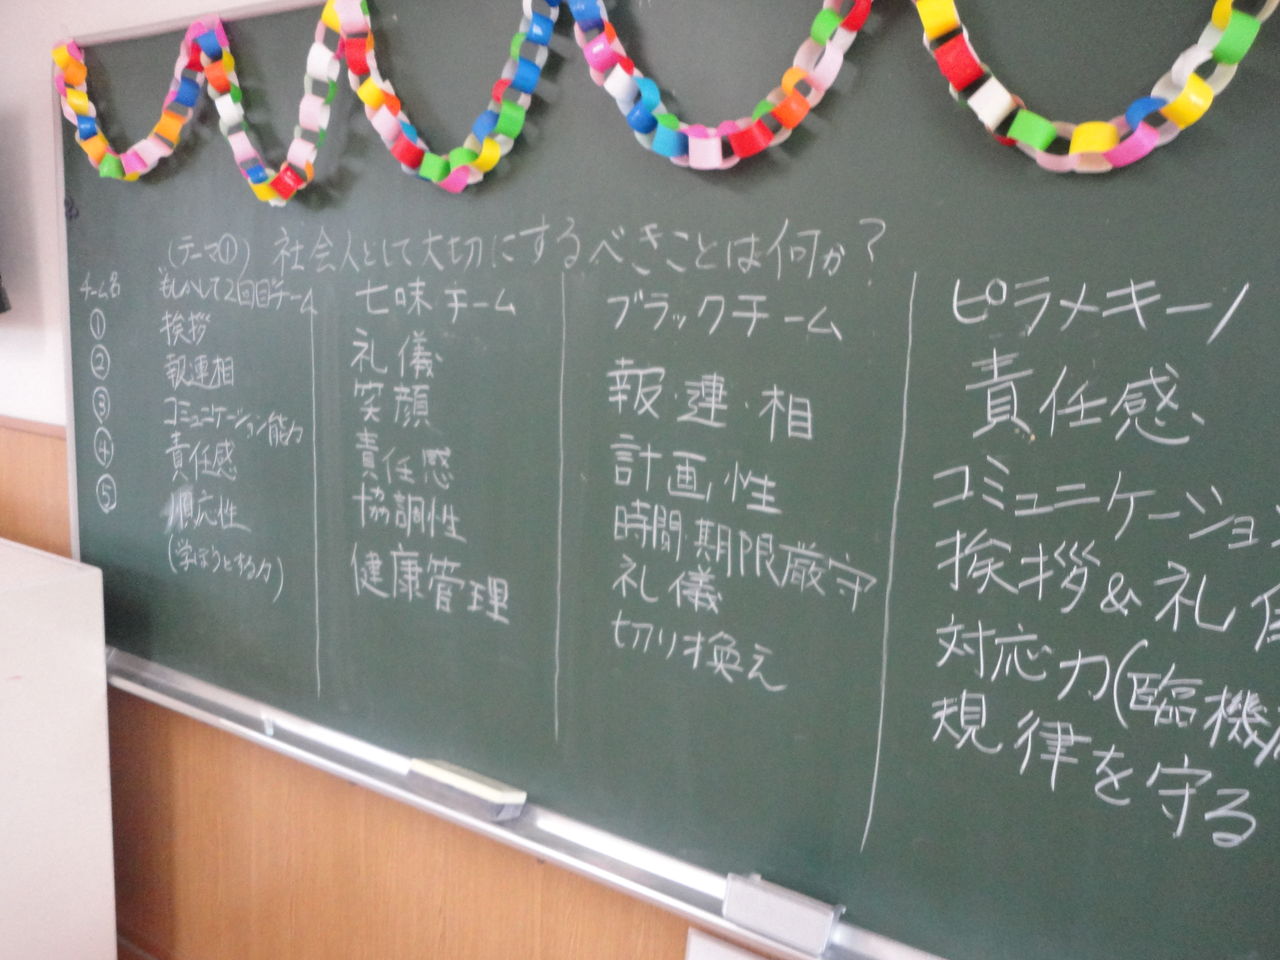 (テーマ①) 社会人として大切にするべきことは何か?
チーム名
①
②
③
④
⑤
もしかして2回目チーム
挨拶
報連相
コミュニケーション能力
責任感
順応性
(学ぼうとする力)
七味チーム
礼儀
笑顔
責任感
協調性
健康管理
ブラックチーム
報・連・相
計画性
時間・期限厳守
礼儀
切り換え
ピラメキーノ
責任感、
コミュニケーション
挨拶&礼
対応力(臨機
規律を守る